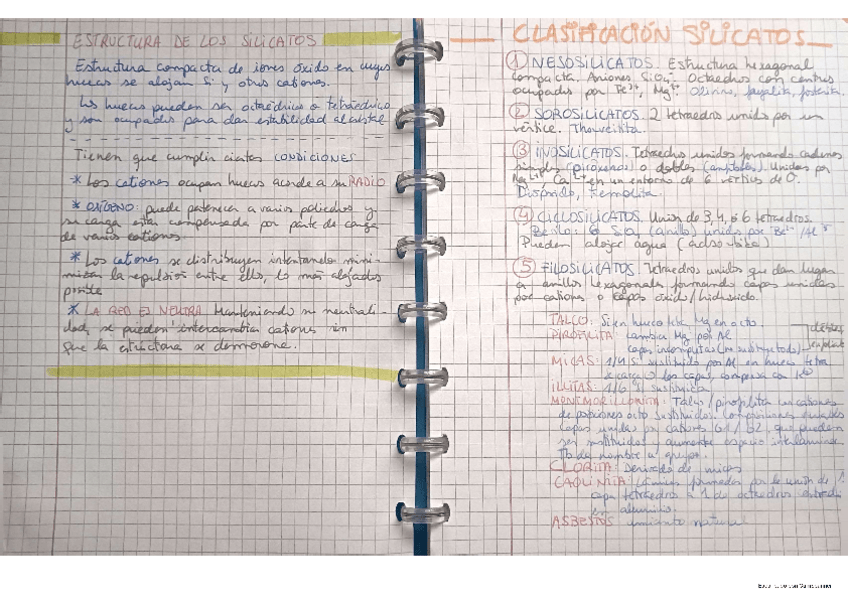 ESTRUCTURA DE LOS SILICATOS
Estructura compacta de iones óxido en cuyos
huecos se alojan Si y otros cationes.
Los huecos pueden ser octaédricos o tetraédricos
y son ocupados para dar estabilidad al cristal
Tienen que cumplir ciertas CONDICIONES
* Los cationes ocupan huecos acorde a su RADIO
* OXÍGENO: puede pertenecer a varios poliedros y
su carga estar compensada por parte de carga
de varios cationes.
* Los cationes se distribuyen intentando mini-
mizar la repulsión entre ellos, lo más alejados
posible
* LA RED ES NEUTRA Manteniendo su neutrali-
dad, se pueden intercambiar cationes sin
que la estructura se desmorone.
CLASIFICACIÓN SILICATOS
① NESOSILICATOS. Estructura hexagonal
compacta. Aniones SiO4. Octaedros con centros
ocupados por Fe2+, Mg2+ Olivino, fayalita, fosterita.
② SOROSILICATOS. 2 tetraedros unidos por un
vértice. Thorveitita.
③ INOSILICATOS. Tetraedros unidos formando cadenas
simples (piroxenos) o dobles (anfíboles). Unidas por
Ca2+ en un entorno de 6 vértices de O
Diópsido, Tremolita.
④ CICLOSILICATOS. Unión de 3, 4, ó 6 tetraedros.
Berilo: 6 SiO4 (anillo) unidos por Be2+/Al3+
Pueden alojar agua (adsorbida)
⑤ FILOSILICATOS. Tetraedros unidos que dan lugar
a anillos hexagonales formando capas unidas
por cationes o capas óxido/hidróxido.
TALCO: Si en hueco tetr. Mg en octo.
PIROFILITA: cambia Mg por Al
capas incompletas
MICAS: 1/4 Si sustituido por Al en hueco tetra
ILLITAS: 1/6 Si sustituido
MONTMORILLONITA: Talco/pirofilita con cationes
de posiciones octo sustituidos.
capas unidas por cationes G1/G2, que pueden
ser sustituidos y aumentar espacio interlaminar
da nombre a grupo.
CLORITA: Derivado de micas
CAOLINITA: Láminas formadas por la unión de 1
capa tetraedros a 1 de octaedros
en aluminio.
ASBESTOS amianto natural